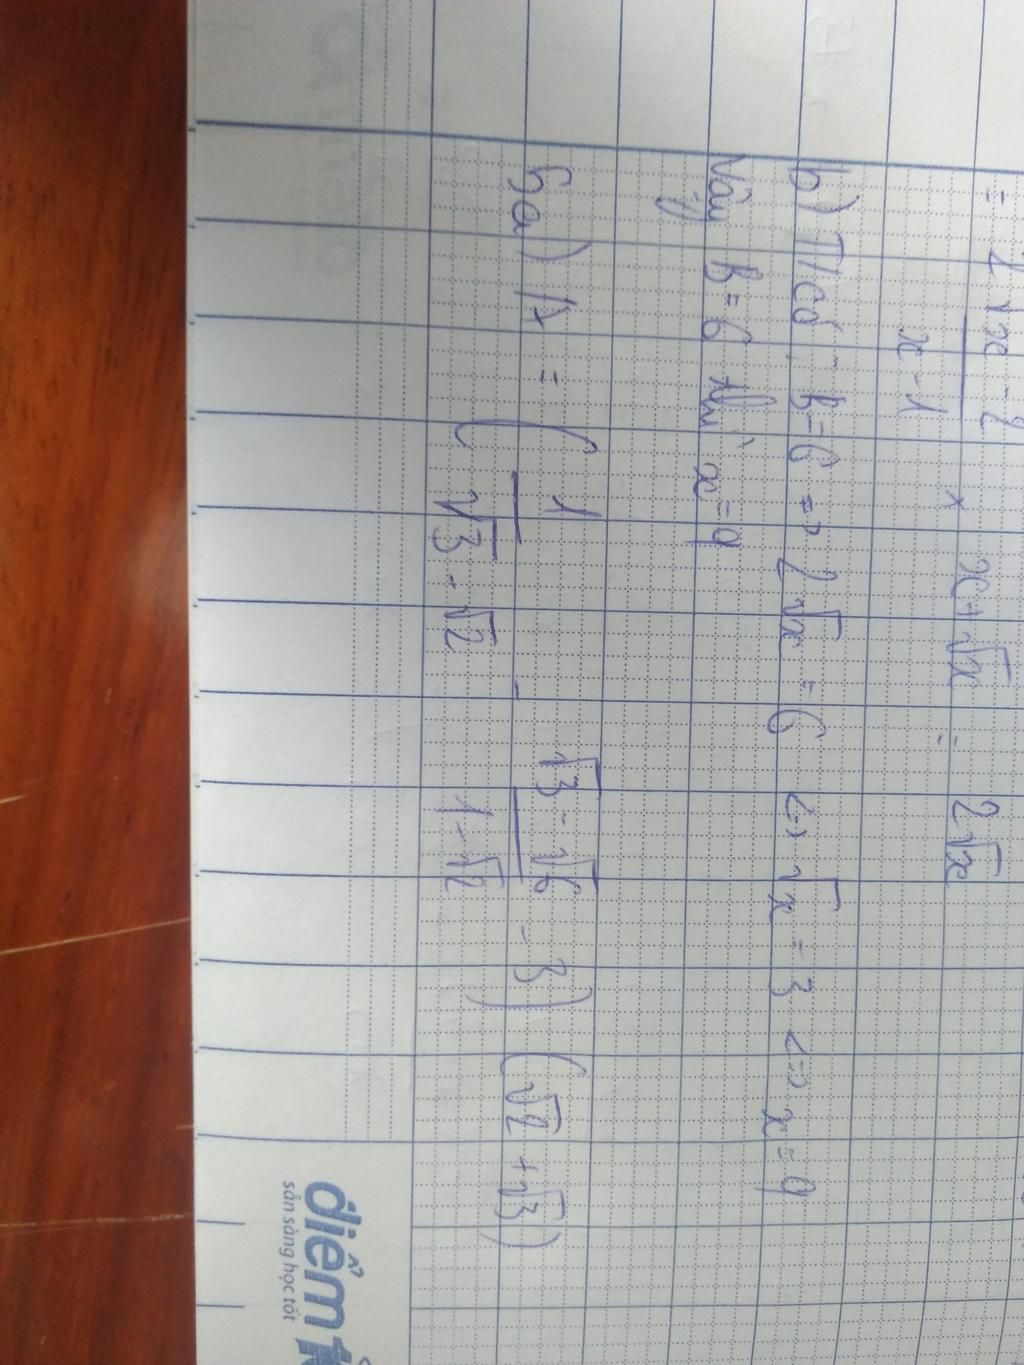 = 2√x - 2 / x - 1 × x + √x = 2√x
b) T/có B = 6 => 2√x = 6 <=> √x = 3 <=> x = 9
Vậy B = 6 thì x = 9
5a) A = ( 1 / √3 - √2 - √3 - √6 / 1 - √2 - 3 ) ( √2 + √3 )
điểm
sẵn sàng học tốt